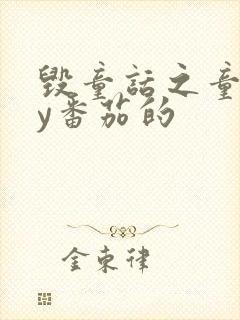 毁童话之童
y番茄的
金束律